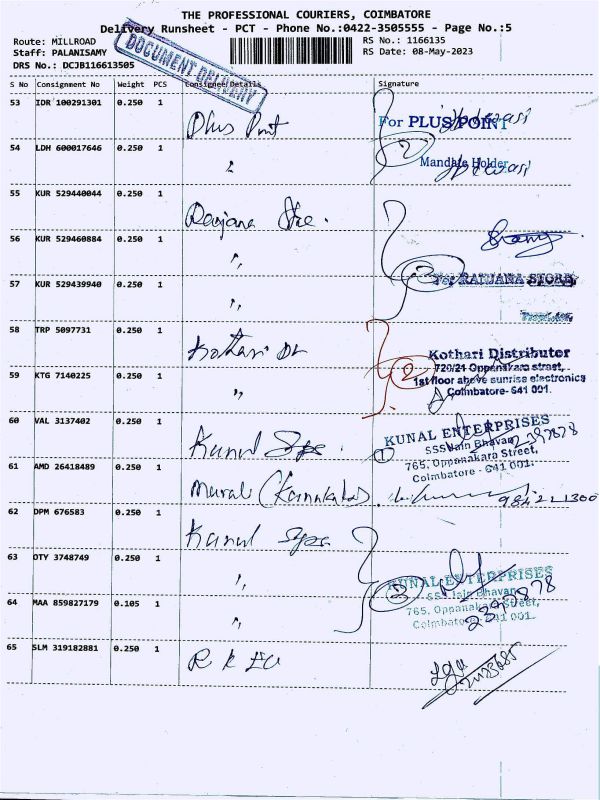 THE PROFESSIONAL COURIERS, COIMBATORE
Delivery Runsheet - PCT - Phone No.:0422-3505555 - Page No.:5
Route: MILLROAD
Staff: PALANISAMY
DRS No.: DCJB116613505
RS No.: 1166135
RS Date: 08-May-2023
DOCUMENT DELIVERY
S No Consignment No Weight PCS Consignee Details Signature
53 IDR 100291301 0.250 1 Plus Point
For PLUS POINT
54 LDH 600017646 0.250 1 "
2
Mandate Holder
55 KUR 529440044 0.250 1 Ranjana Store.
56 KUR 529460884 0.250 1 "
57 KUR 529439940 0.250 1 "
3
For RANJANA STORE
58 TRP 5097731 0.250 1 Kothari Di
Kothari Distributor
720/21 Oppanakara street,
1st floor above sunrise electronics
Coimbatore- 641 001.
59 KTG 7140225 0.250 1 "
2
60 VAL 3137402 0.250 1 Kunal
1
KUNAL ENTERPRISES
SSS Jain Bhavan,
765, Oppanakara Street,
Coimbatore - 641 001.
2397878
61 AMD 26418489 0.250 1 Murali (Karnataka).
62 DPM 676583 0.250 1 Kunal
63 OTY 3748749 0.250 1 "
3
KUNAL ENTERPRISES
SSS Jain Bhavan,
765, Oppanakara Street,
Coimbatore - 641 001.
2397878
64 MAA 859827179 0.105 1 "
65 SLM 319182881 0.250 1 R K